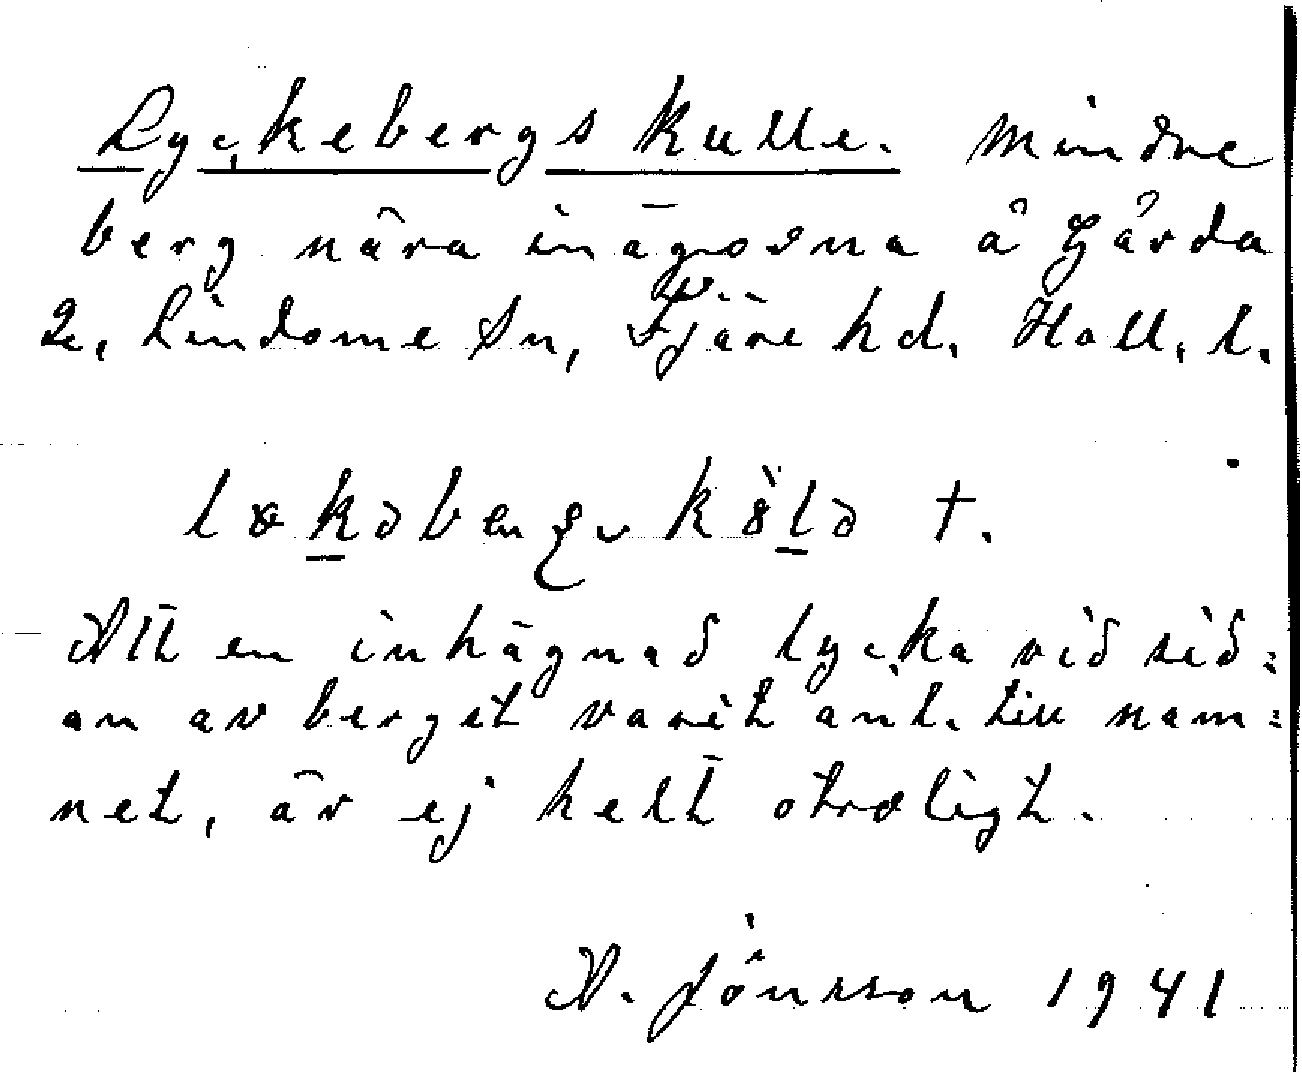 Lyckebergs kulle. Mindre
berg nära inägorna å Gårda
2, Lindome sn, Fjäre hd. Hall. l.
Att en inhägnad lycka vid sid=
an av berget varit anl. till nam=
net, är ej helt otroligt.
A. Jönsson 1941